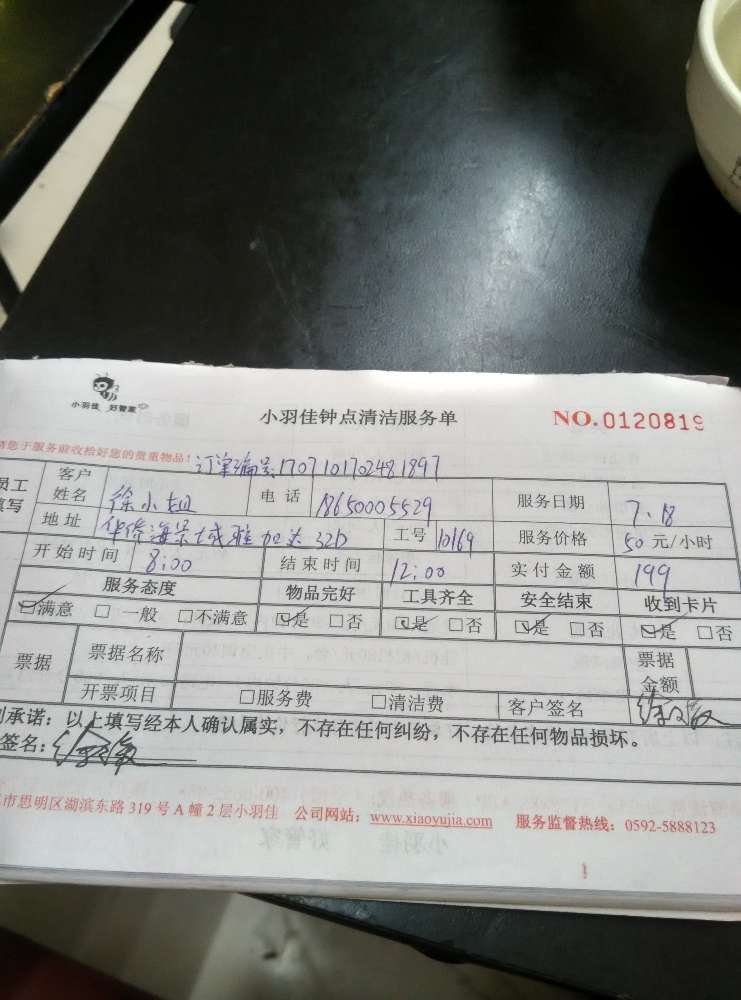 小羽佳 好管家
小羽佳钟点清洁服务单
NO.0120819
请您于服务前收检好您的贵重物品！ 订单编号:1707101702481897
员工填写 客户姓名 徐小姐 电话 18650005529 服务日期 7.18
地址 华侨海景城雅加达32D 工号 10169 服务价格 50 元/小时
开始时间 8:00 结束时间 12:00 实付金额 199
服务态度 物品完好 工具齐全 安全结束 收到卡片
☑满意 □一般 □不满意 ☑是 □否 ☑是 □否 ☑是 □否 ☑是 □否
票据 票据名称 票据金额
开票项目 □服务费 □清洁费 客户签名
承诺：以上填写经本人确认属实，不存在任何纠纷，不存在任何物品损坏。
签名：
市思明区湖滨东路 319 号 A 幢 2 层小羽佳 公司网站：www.xiaoyujia.com 服务监督热线：0592-5888123